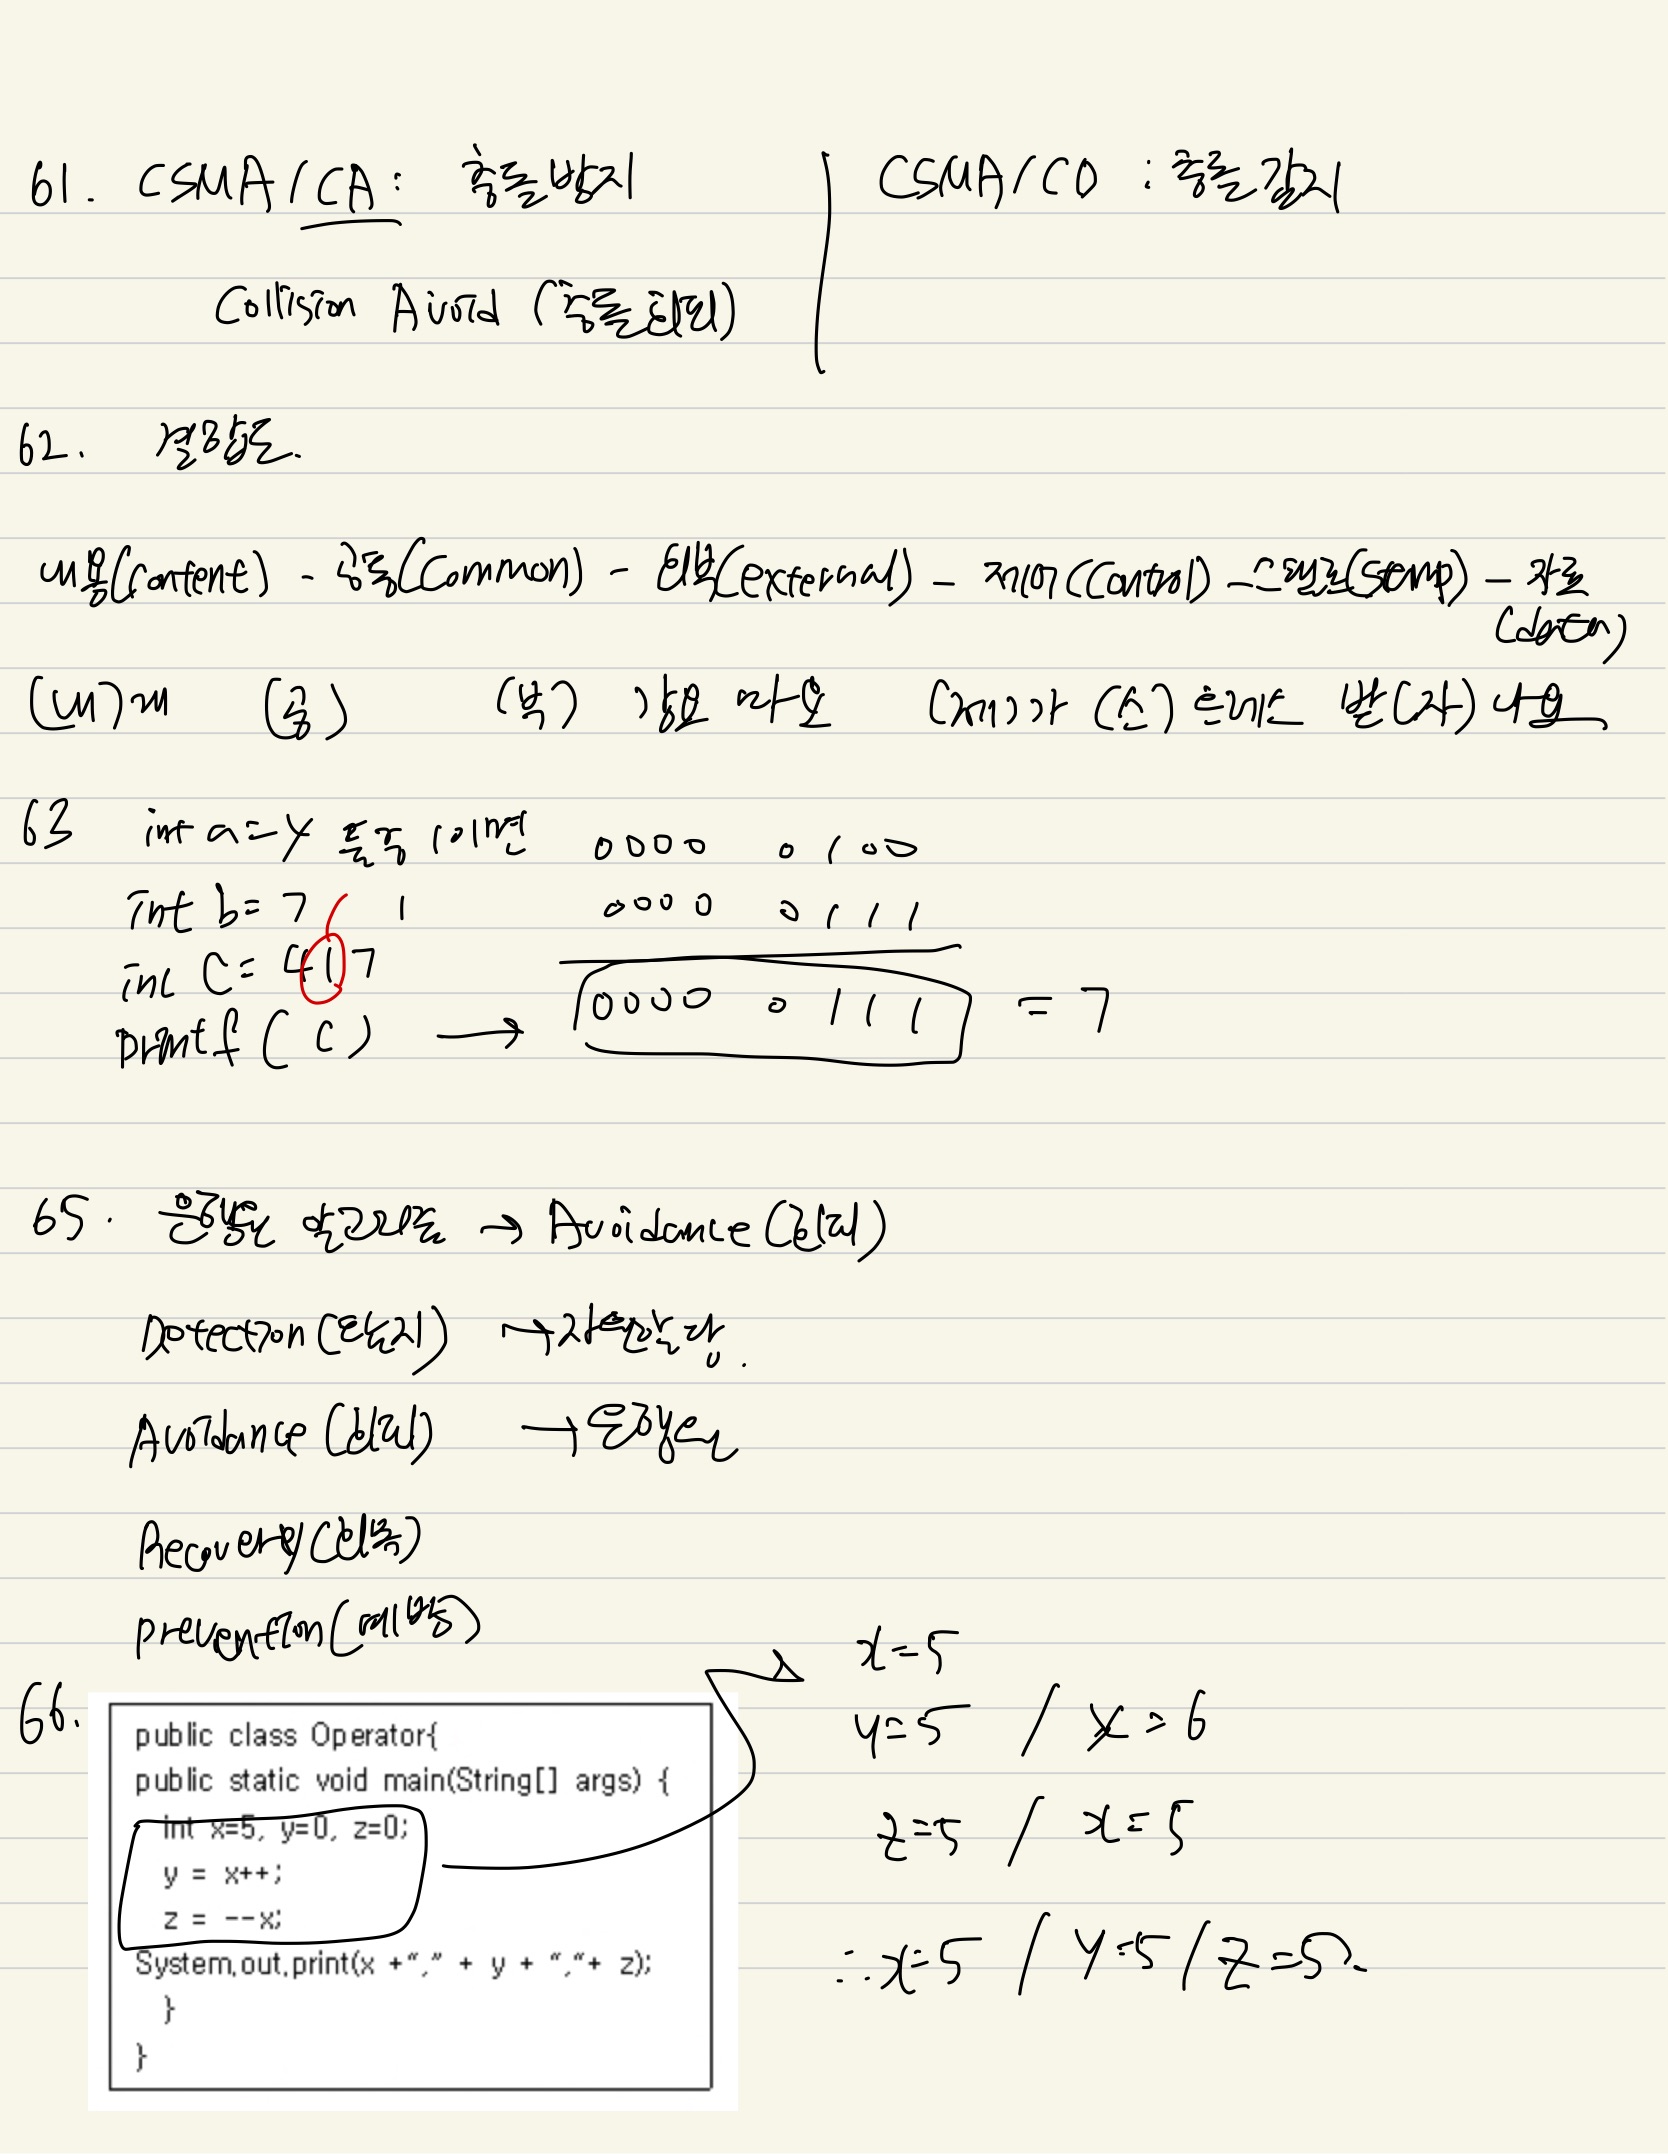 61. CSMA/CA: 충돌방지
CSMA/CD : 충돌감지
Collision Avoid (충돌회피)
62. 결합도.
내용(Content) - 공통(Common) - 외부(external) - 제어(Control) - 스탬프(stamp) - 자료
(data)
(내)게 (공) (부) 하고 (제)가 (스) 밭(자)
63 int a=4 둘중 1이면
0000 0100
int b= 7 1
0000 0111
int C= 4|7
printf ( c ) → 0000 0111 = 7
65. 은행원 알고리즘 → Avoidance (회피)
Detection (탐지) → 자원할당.
Avoidance (회피) → 은행원
Recovery (회복)
prevention (예방)
66.
public class Operator{
public static void main(String[] args) {
int x=5, y=0, z=0;
y = x++;
z = --x;
System.out.print(x +“,” + y + “,”+ z);
}
}
x=5
y=5 / x=6
z=5 / x=5
∴ x=5 / y=5 / z=5.